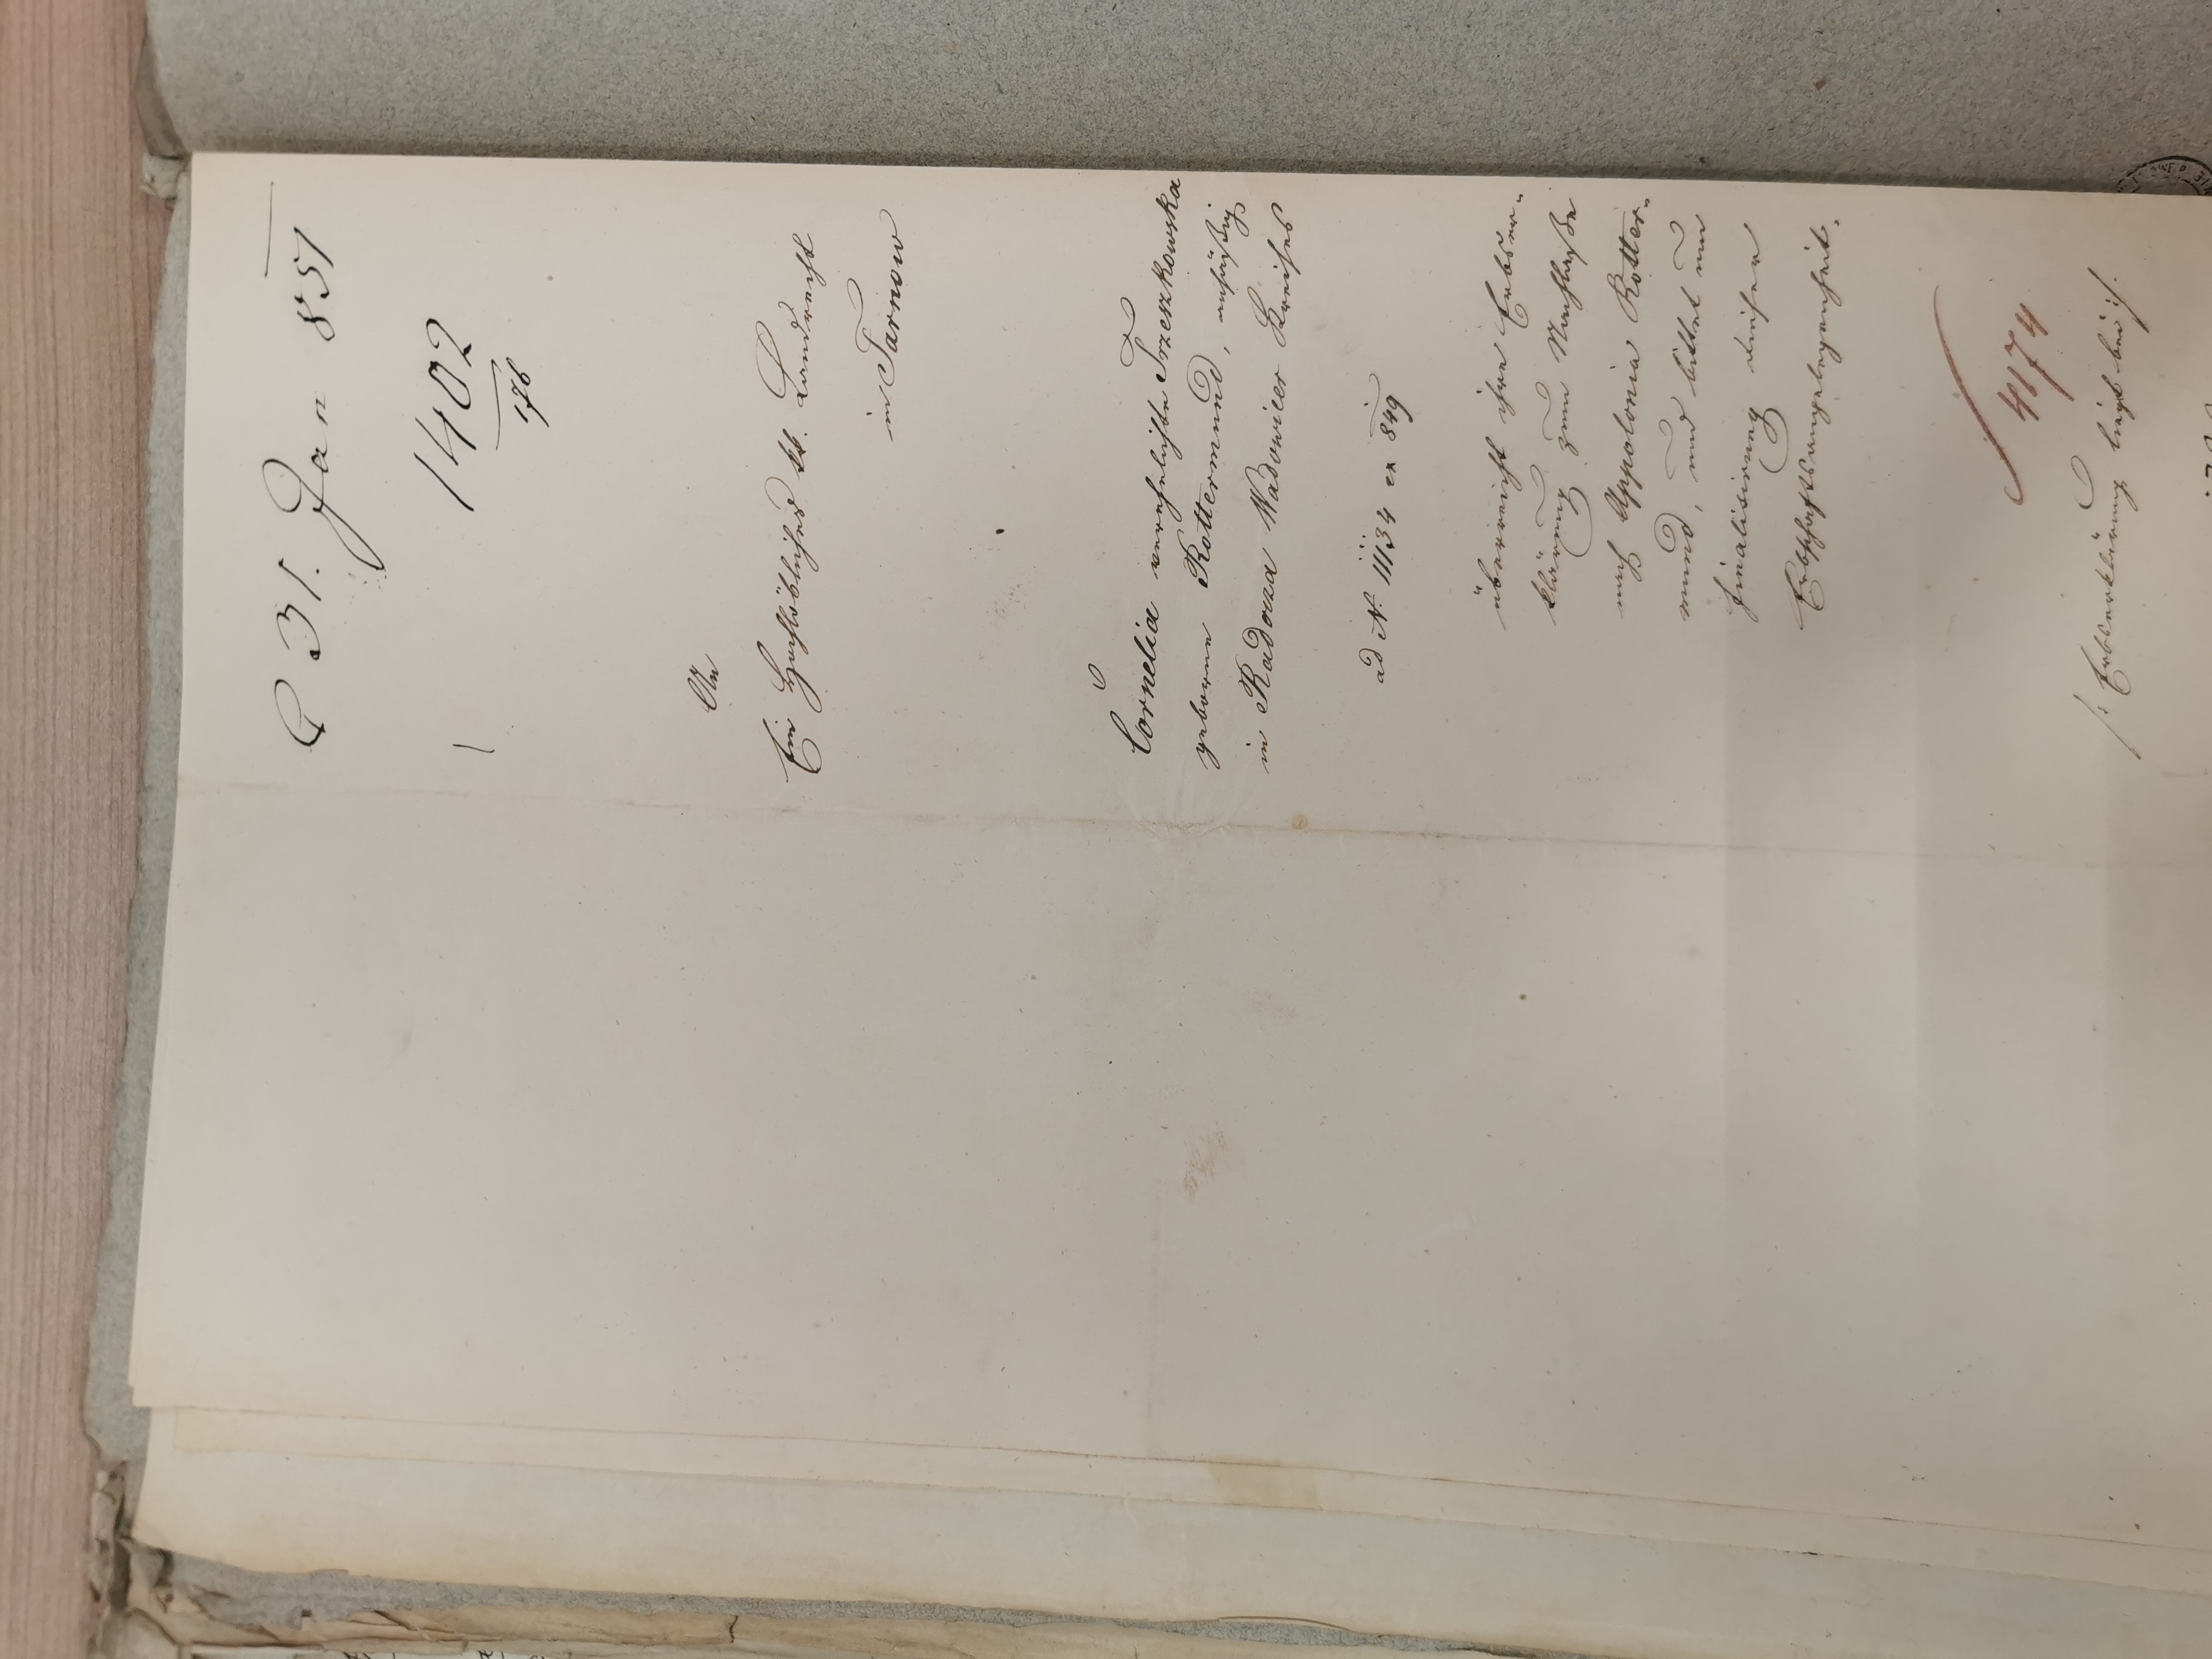 31. Jan 851
1402
176
An
Ein Hochlöbliches kk. Landrecht
in Tarnow
Cornelia verehelichte Trzeszkowska
geborne Rottermund, ansäßig
in Radocza Wadowicer Kreises
ad N. 11134 ex 849
überreicht ihre Erbser-
klärung zum Nachlaße
nach Appolonia Rotter-
mund, und bittet um
Finalisirung dieser
Erbschaftsangelegenheit.
4174
/: Erbserklärung liegt bei :/.